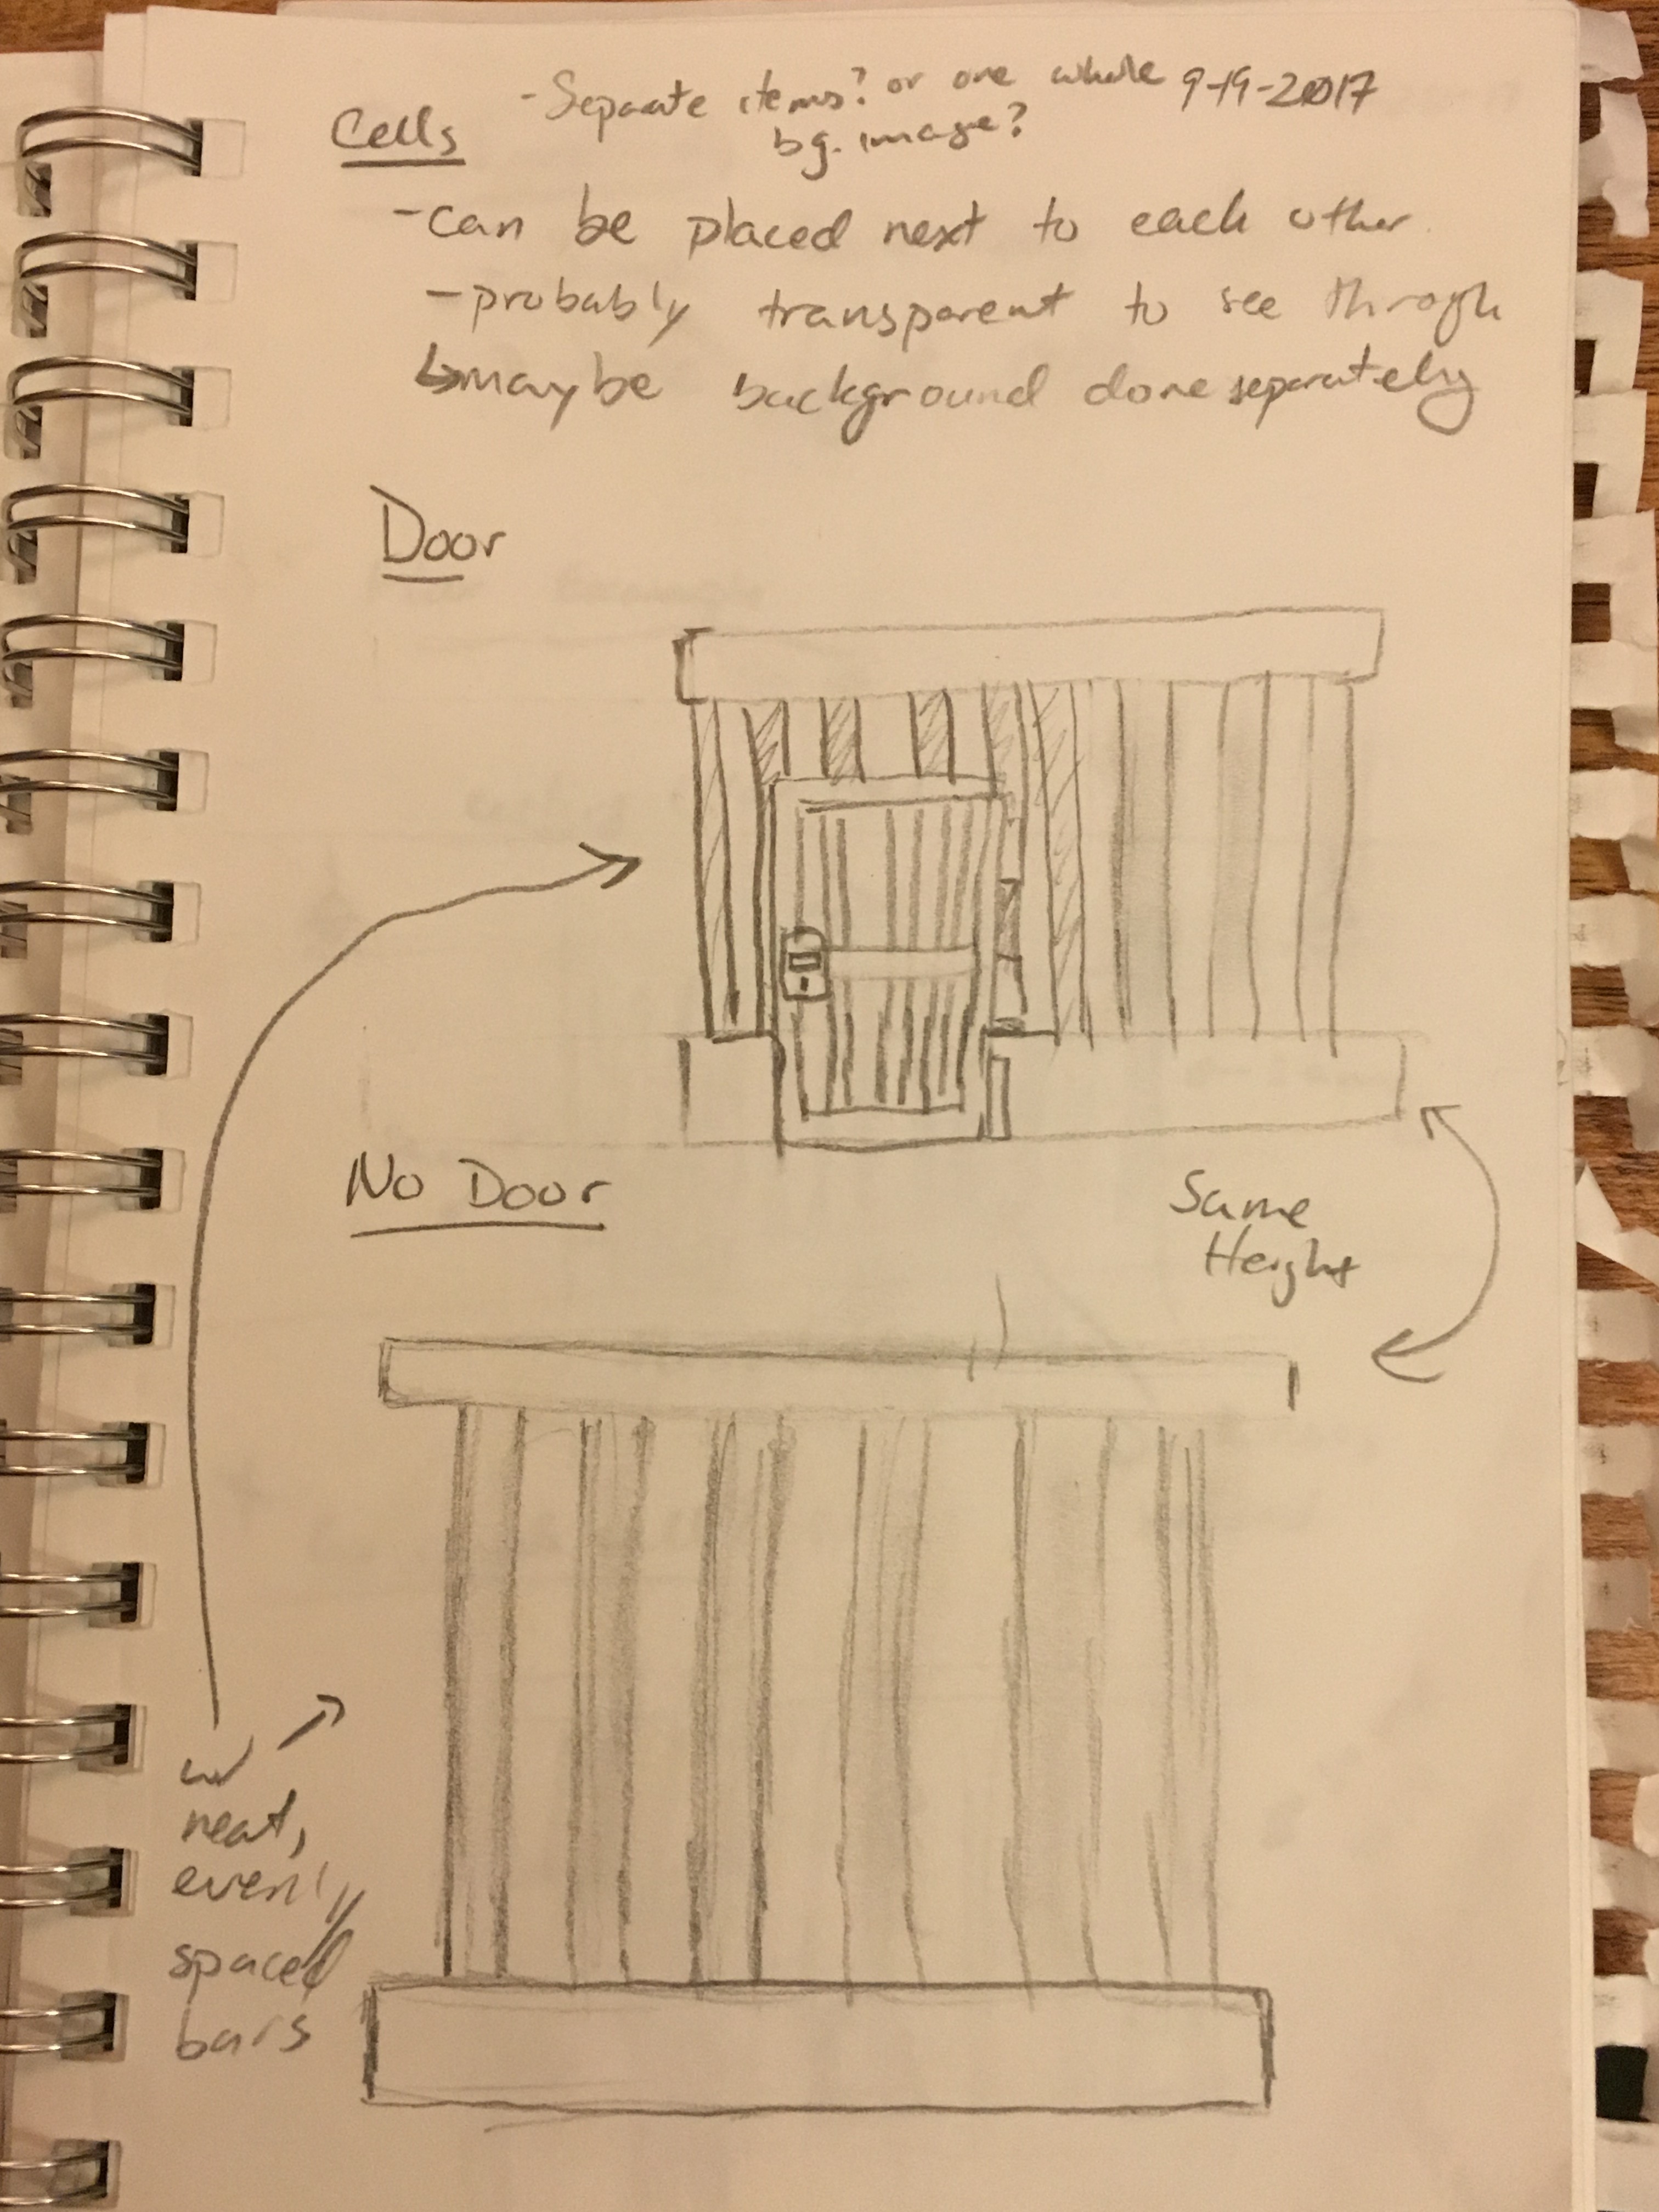 Cells
- Separate items? or one whole
bg. image?
9-19-2017
- can be placed next to each other.
- probably transparent to see through
↳ maybe background done separately
Door
No Door
Same
Height
w/
neat,
evenly
spaced
bars